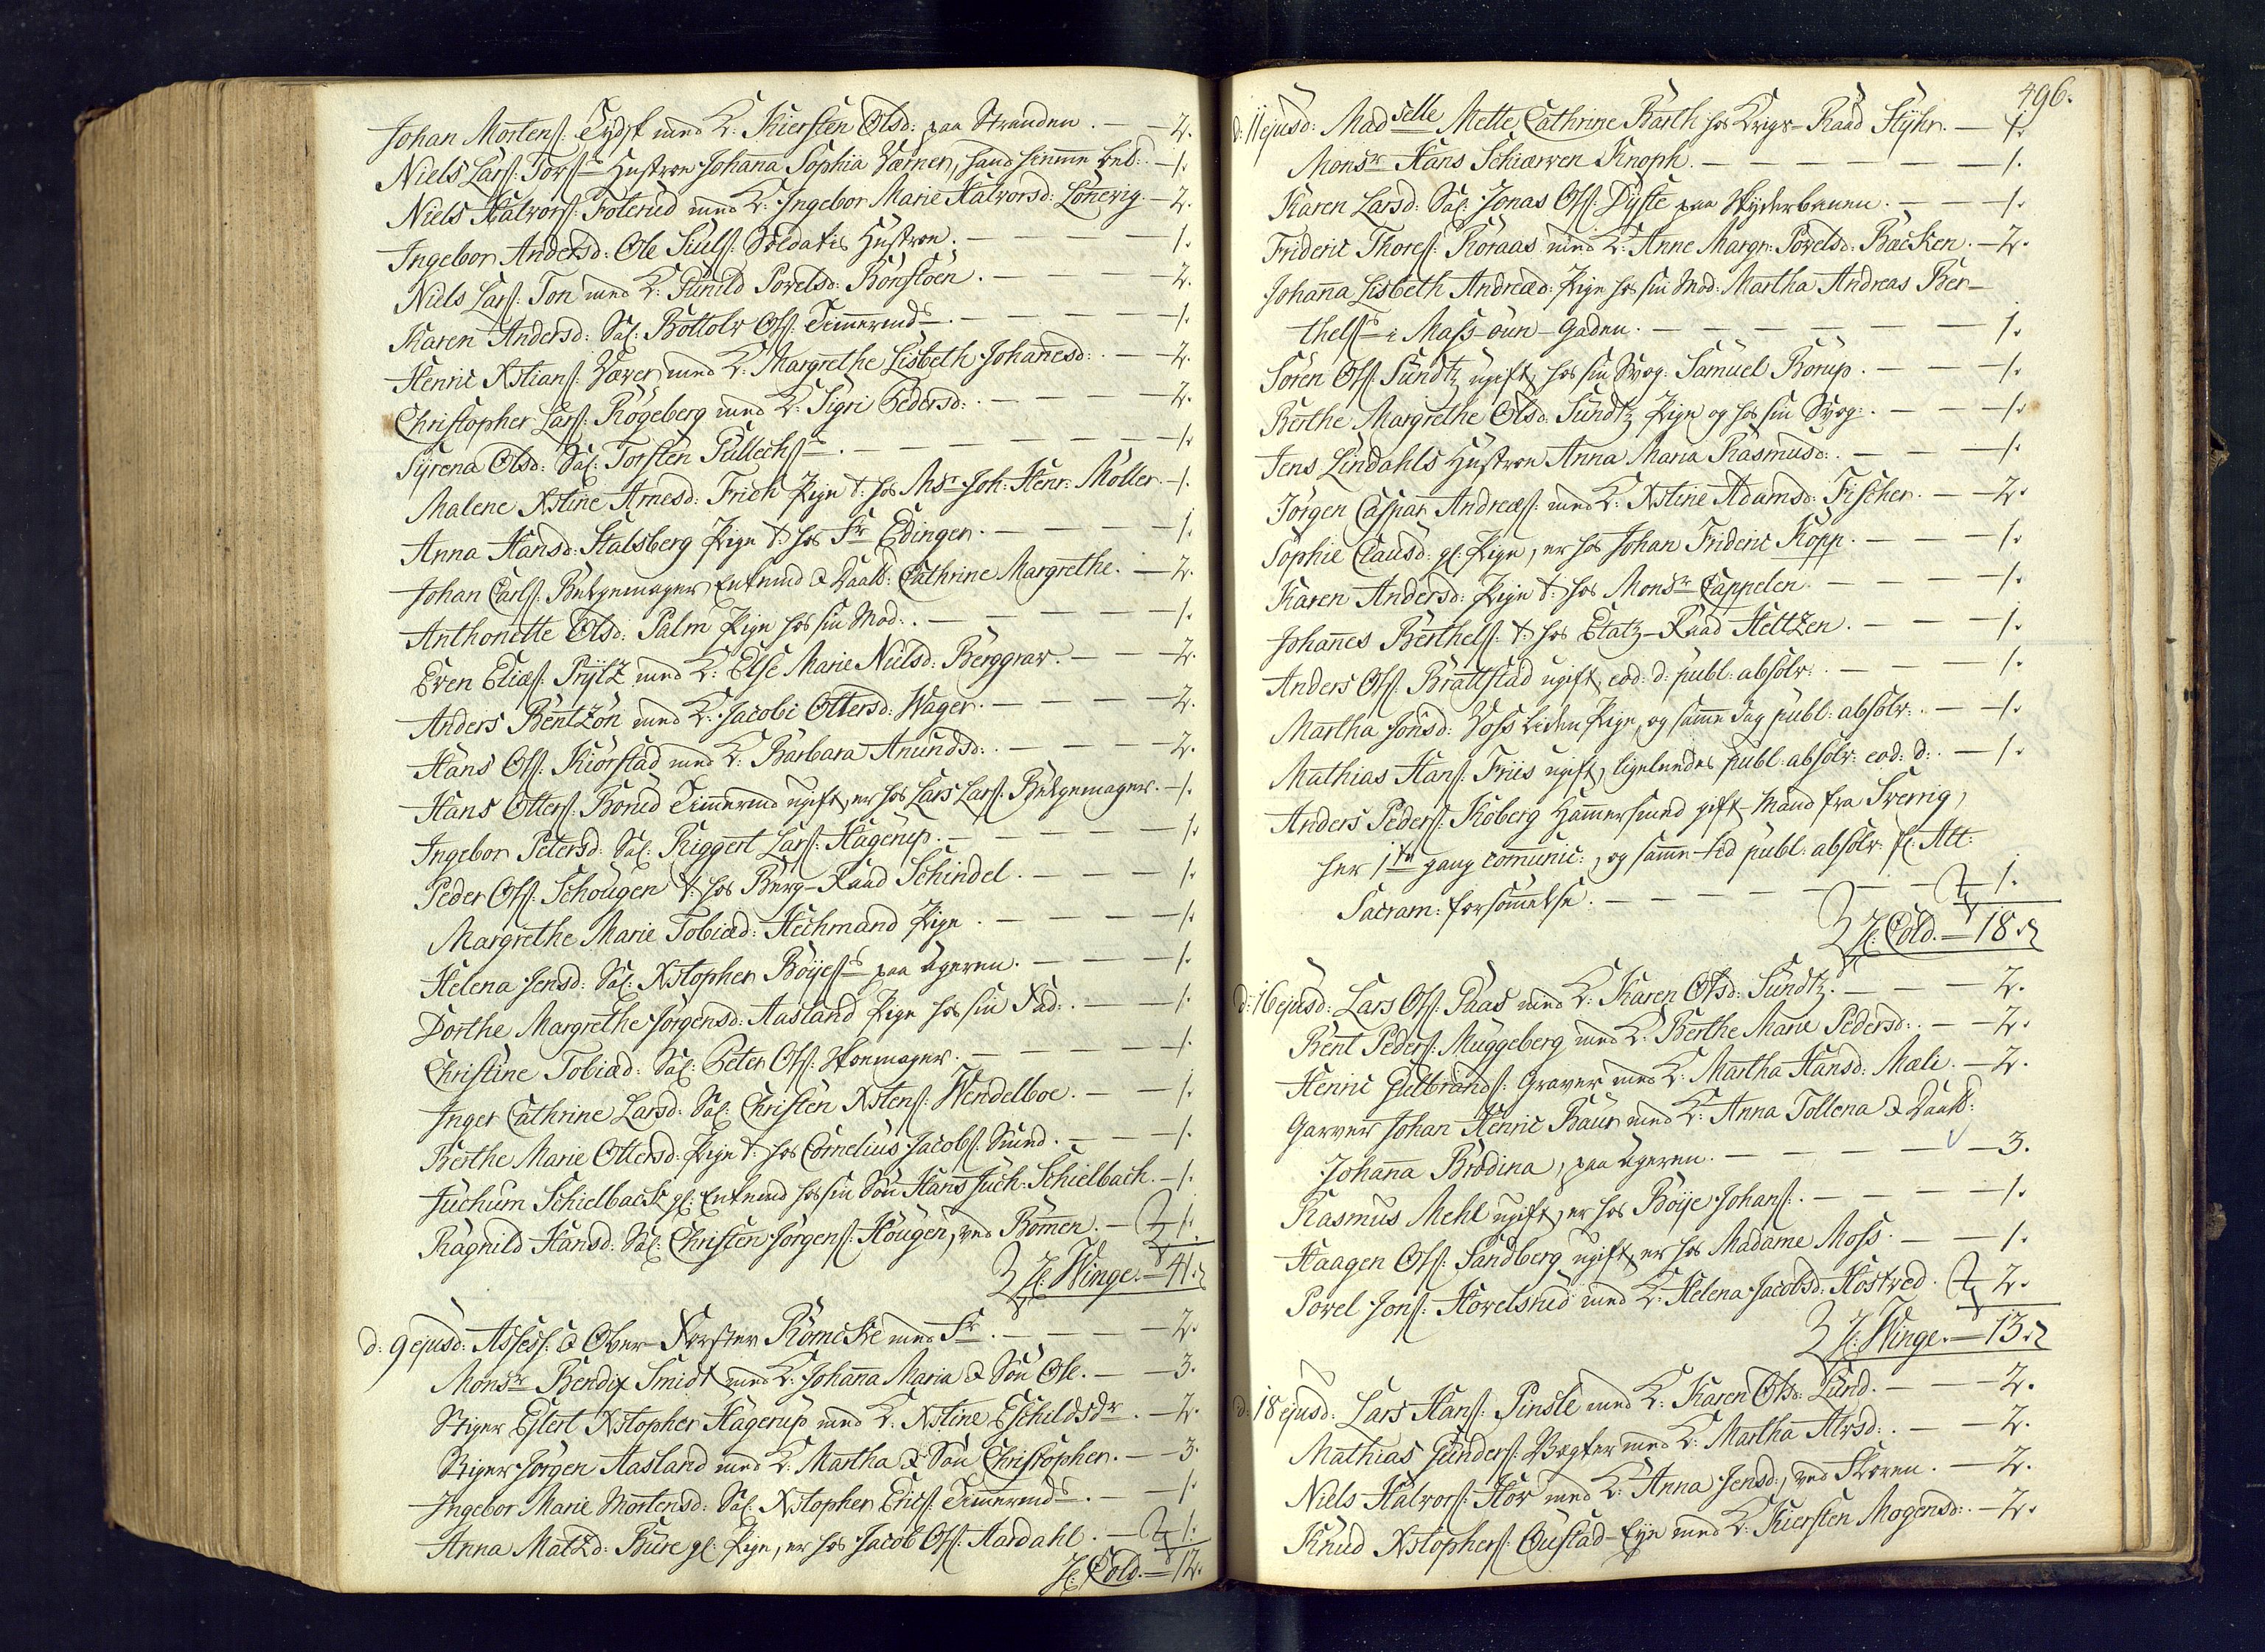 Johan Mortens: Tydsk med K: Kiersten Olsd: paa Stranden. — 2.
Niels Lars: Torss Hustroe Johanna Sophia Værner, hand hiemme bed: — 1.
Niels Halvors: Foterud med K: Ingebor Marie Halvorsd: Lönevig. — 2.
Ingebor Andersd: Ole Siuls: Soldatis Hustroe. — 1.
Niels Lars: Ton med K: Gunild Povelsd: Bönsloen. — 2.
Karen Andersd: Sal: Bottolv Ols: Timermds. — 1.
Henric Xstians: Væver med K: Margrethe Lisbeth Johanesd: — 2.
Christopher Lars: Rögeberg med K: Sigri Pedersd: — 2.
Syrena Olsd: Sal: Torsten Gullechs. — 1.
Malene Xstine Arnesd: Frich Pige t: hos Msr Joh: Henr: Möller. — 1.
Anna Hansd: Stalsberg Pige t: hos Fr Edinger. — 1.
Johan Carls: Belgemager Enkemd & Daatt: Cathrine Margrethe. — 2.
Anthonette Olsd: Palm Pige hos sin Mod: — 1.
Even Elias: Prytz med K: Else Marie Nielsd: Berggrav. — 2.
Anders Bentzön med K: Jacobe Ottersd: Wager. — 2.
Hans Ols: Kiörstad med K: Barbara Amundsd: — 2.
Hans Otters: Borud Timermd ugift, er hos Lars Lars: Belgemager. — 1.
Ingebor Petersd: Sal: Riggert Lars: Hagerup. — 1.
Peder Ols: Schougen t: hos Berg-Raad Schindel. — 1.
Margrethe Marie Tobiæd: Hechmand Pige. — 1.
Helena Jensd: Sal: Xstopher Böijes paa Ageren. — 1.
Dorthe Margrethe Jörgensd: Aasland Pige hos sin Fad: — 1.
Christine Tobiæd: Sal: Peter Ols: Skoemager. — 1.
Inger Cathrine Larsd: Sal: Christen Xstens: Wendelboe. — 1.
Berthe Marie Ottersd: Pige t: hos Cornelius Jacobs: Smed. — 1.
Juchum Schielbach gl: Enkemd hos sin Sön Hans Juch: Schielbach. — 1.
Ragnild Hansd: Sal: Christen Jörgens: Hougen, ved Bommen. — 1.
Hr: Winge. — 41.
d: 9 ejusd: Assess: & Ober-Forster Römcke med Fr. — 2.
Monsr Bendix Smidt med K: Johanna Maria & Sön Ole. — 3.
Stiger Estert Xstopher Hagerup med K: Xstine Eschildsdr. — 2.
Stiger Jörgen Aasland med K: Martha & Sön Christopher. — 3.
Ingebor Marie Mortensd: Sal: Xstopher Erics: Timermds. — 1.
Anna Matzd: Bure gl: Pige, er hos Jacob Ols: Aardahl. — 1.
Hr: Cold. — 12.
496.
d: 11 ejusd: Madselle Mette Cathrine Barth hos Krigs-Raad Styhr. — 1.
Monsr Hans Schiærven Knoph. — 1.
Karen Larsd: Sal: Jonas Ols: Dyste paa Skyderbanen. — 1.
Frideric Thores: Röraas med K: Anne Margr: Povelsd: Backen. — 2.
Johanna Lisbeth Andreæd: Pige hos sin Mod: Martha Andreas Ber-
thelss i Mass-oun-Gaden. — 1.
Sören Ols: Sundtz ugift, hos sin Svog: Samuel Borup. — 1.
Berthe Margrethe Olsd: Sundtz Pige og hos sin Svog: — 1.
Jens Lindahls Hustroe Anna Maria Rasmusd: — 1.
Jörgen Caspar Andreæs: med K: Xstine Adamsd: Fischer. — 2.
Sophie Clausd: gl: Pige, er hos Johan Frideric Kopp. — 1.
Karen Andersd: Pige t: hos Monsr Cappelen. — 1.
Johannes Berthels: t: hos Etatz-Raad Heltzen. — 1.
Anders Ols: Brattstad ugift, eod: d: publ: absolv: — 1.
Martha Jonsd: Voss leden Pige, og samme dag publ: absolv: — 1.
Mathias Hans: Friis ugift, ligeledes publ: absolv: eod: d: — 1.
Anders Peders: Roberg Hammersmed gift Mand fra Sverrig,
her 1te gang communic:, og samme tid publ: absolv: fr: Alt:
Sacram: forsömmelse. — 1.
Hr: Cold. — 18.
d: 16 ejusd: Lars Ols: Paas med K: Karen Olsd: Sundtz. — 2.
Bent Peders: Muggeberg med K: Berthe Marie Pedersd: — 2.
Henric Gulbrands: Graver med K: Martha Hansd: Mæli. — 2.
Garver Johan Henric Baur med K: Anna Tollena & Daatt:
Johanna Brodina, paa Ageren. — 3.
Rasmus Mehl ugift, er hos Böije Johans: — 1.
Haagen Ols: Sandberg ugift, er hos Madame Moss. — 1.
Povel Jons: Hovelsrud med K: Helena Jacobsd: Hostved. — 2.
Hr: Winge. — 13.
d: 18 ejusd: Lars Hans: Pinsle med K: Karen Olsd: Lund. — 2.
Mathias Gunders: Vægter med K: Martha Alvsd: — 2.
Niels Halvors: Hov med K: Anna Jensd:, ved Skoven. — 2.
Knud Xstophers: Oustad-Eye med K: Kiersten Mogensd: — 2.